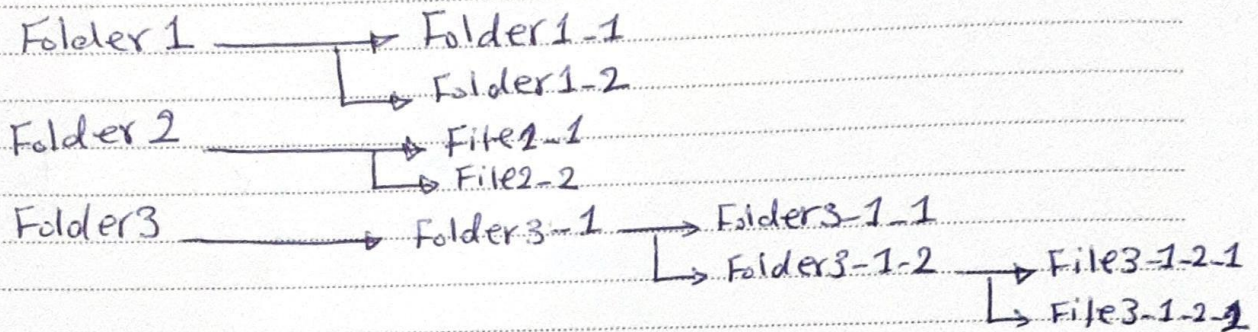 Folder 1 → Folder 1-1
Folder 1-2
Folder 2 → File2-1
File2-2
Folder3 → Folder3-1 → Folder3-1-1
Folder3-1-2 → File3-1-2-1
File3-1-2-2